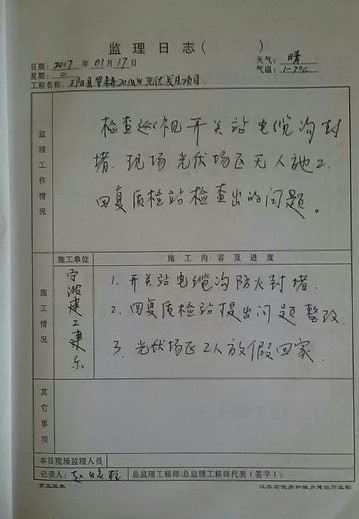 监理日志（ ）
日期：2017年01月17日 天气：晴
星期：二 气温：1-7℃
工程名称：20MW光伏发电项目
监理工作情况
检查巡视开关站电缆沟封
堵．现场光伏场区无人施工．
回复质检站检查出的问题。
施工单位 施工内容及进度
施工情况
宁波建工建乐
1．开关站电缆沟防火封堵．
2．回复质检站提出问题整改．
3．光伏场区工人放假回家．
其它事项
本日现场监理人员
记录人： 总监理工程师/总监理工程师代表（签字）：
江苏省住房和城乡建设厅监制